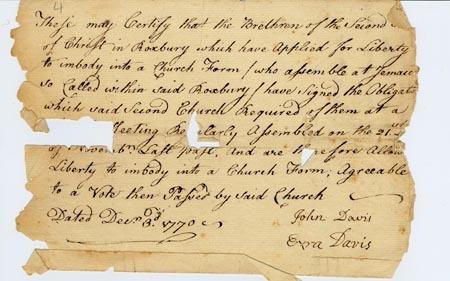 4
These may Certify that the Brethren of the Second
of Christ in Roxbury which have Applied for Liberty
to imbody into a Church Form / who assemble at Jemaic
so Called within said Roxbury / have signed the Obligat
which said Second Church Required of them at a
Meeting Regularly Assembled on the 21
of Novembr. Last past, and are therefore Allow
Liberty to imbody into a Church Form; Agreeable
to a Vote then Passed by said Church
Dated Decr. 3d. 1770
John Davis
Ezra Davis